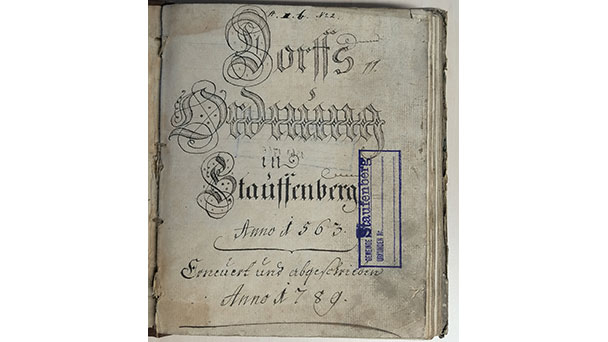 Dorffs
Ordnung
in
Stauffenberg
Anno 1563.
Erneuert und abgeschrieben
Anno 1789.
GEMEINDE
Staufenberg